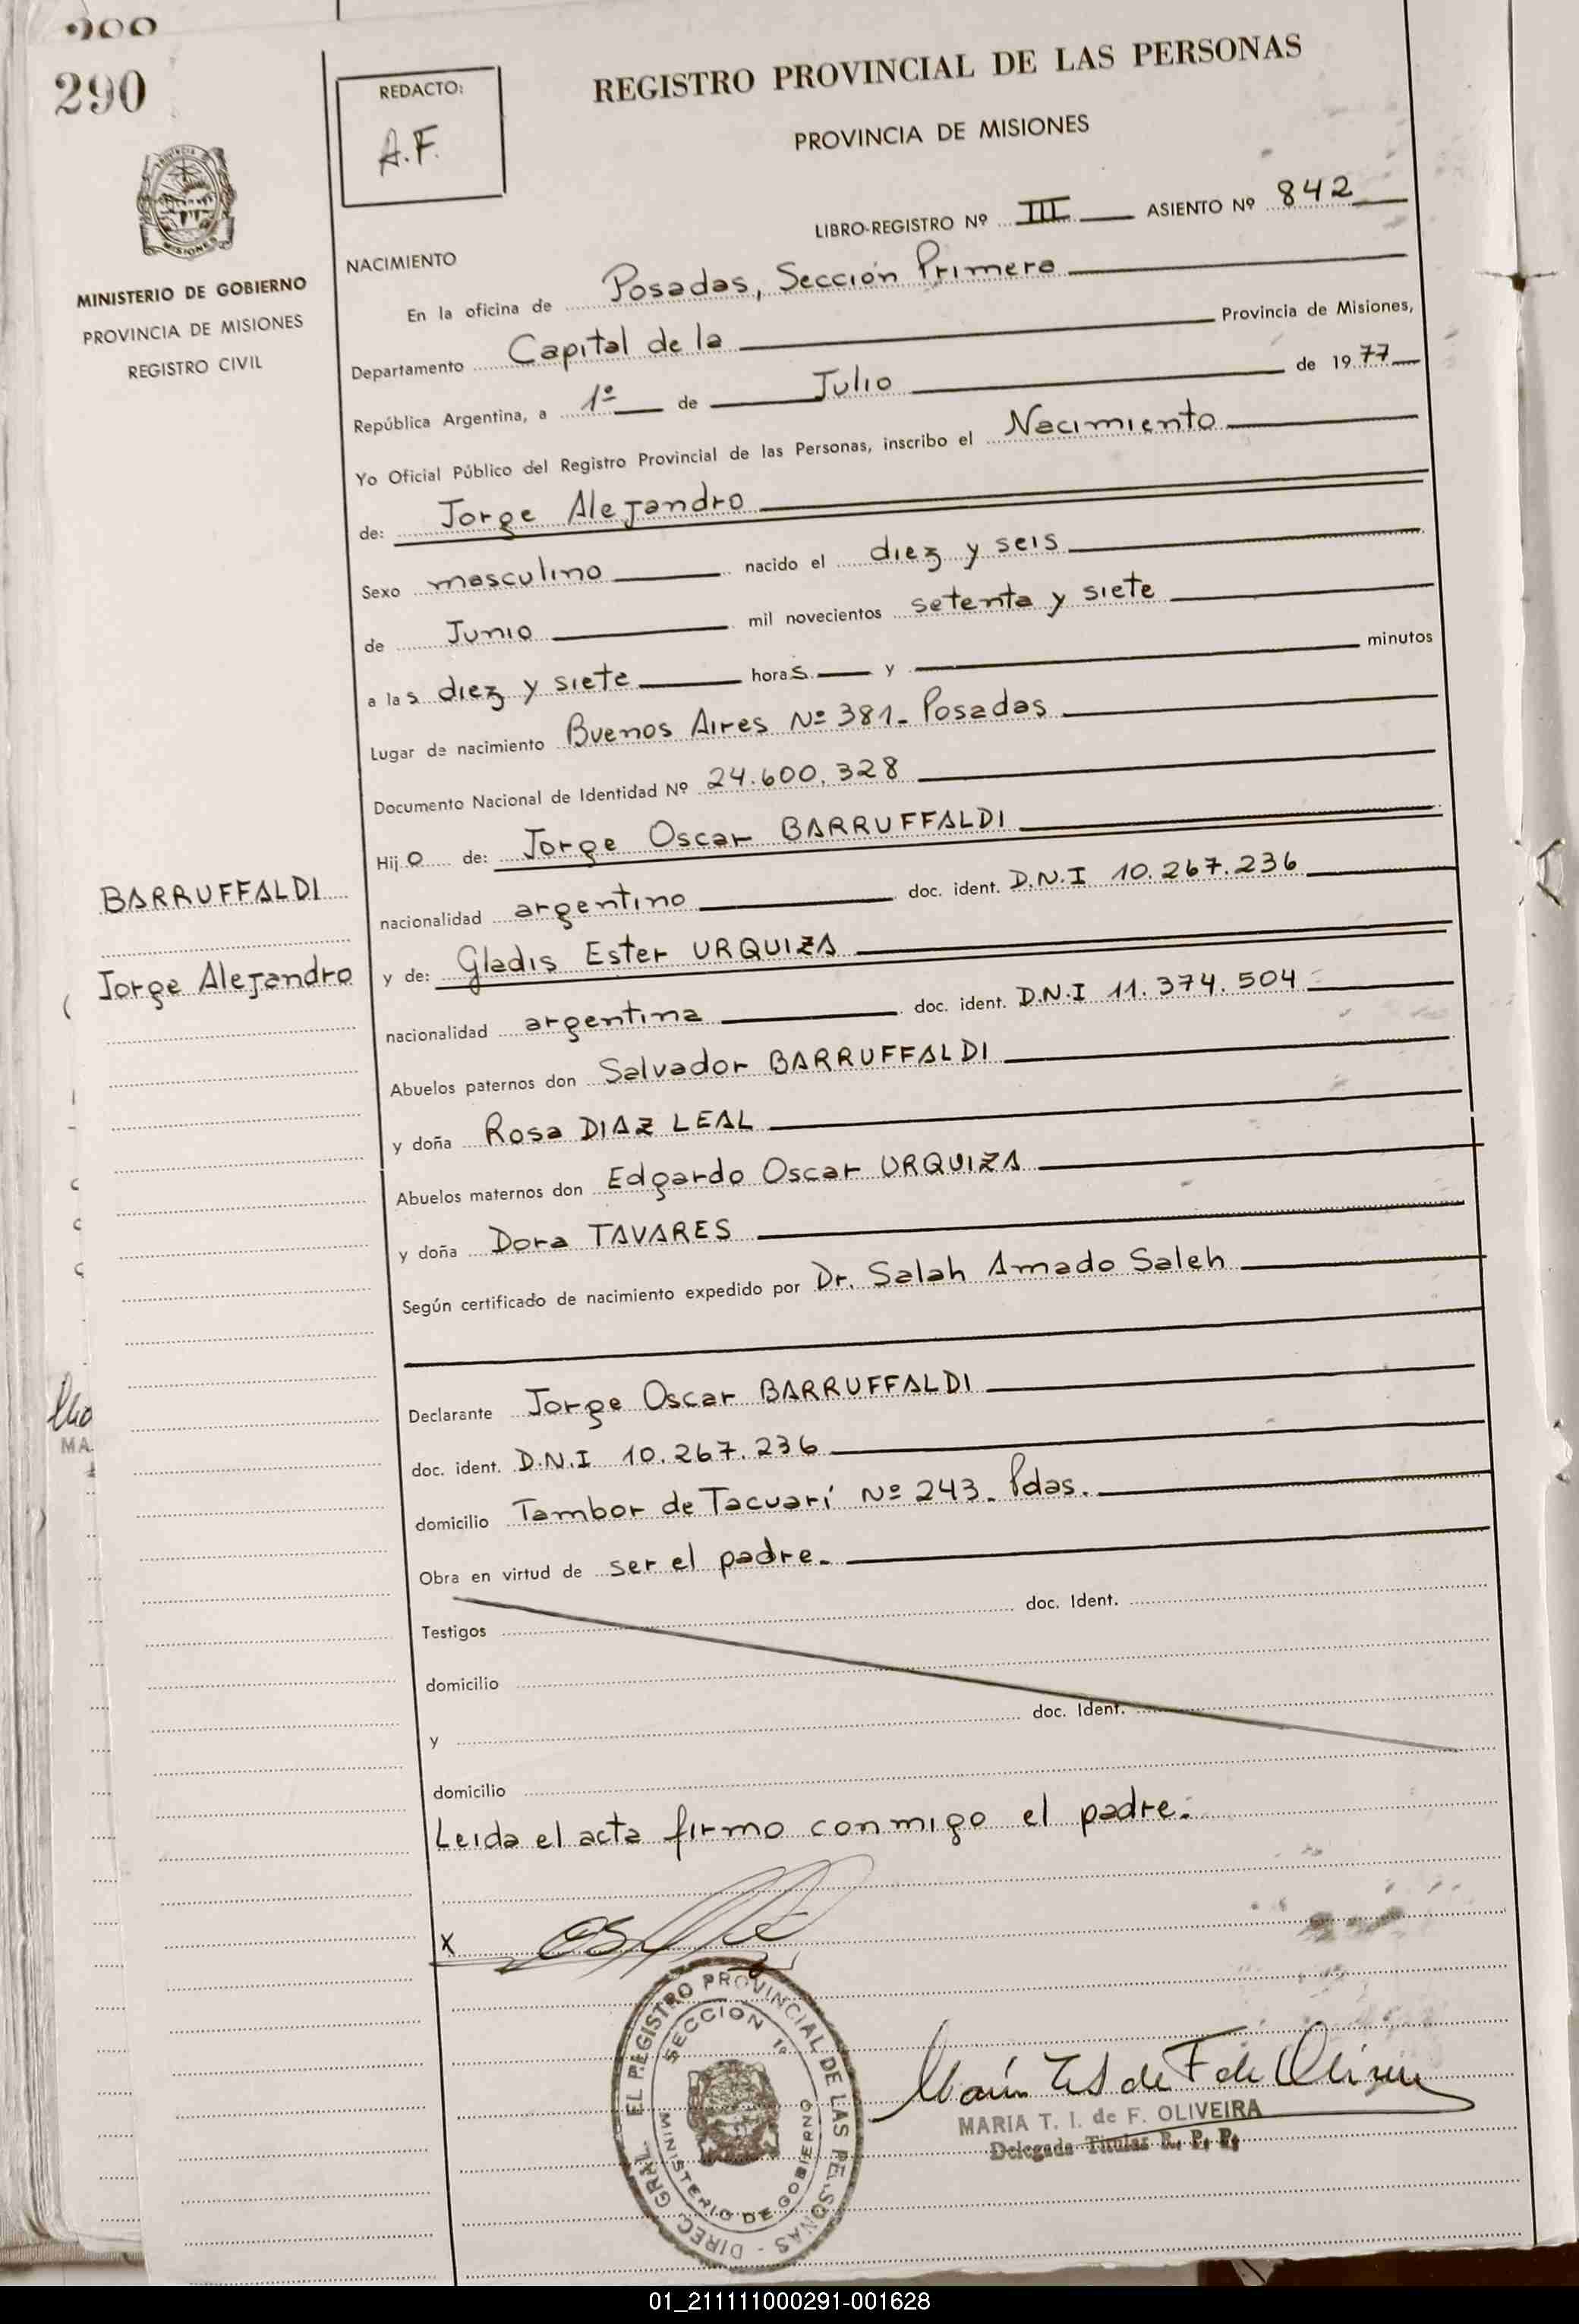 290
REDACTO:
A.F.
REGISTRO PROVINCIAL DE LAS PERSONAS
PROVINCIA DE MISIONES
LIBRO-REGISTRO Nº III ASIENTO Nº 842
MINISTERIO DE GOBIERNO
PROVINCIA DE MISIONES
REGISTRO CIVIL
NACIMIENTO
En la oficina de Posadas, Sección Primera
Departamento Capital de la Provincia de Misiones,
República Argentina, a 1º de Julio de 1977
Yo Oficial Público del Registro Provincial de las Personas, inscribo el Nacimiento
de: Jorge Alejandro
Sexo masculino nacido el diez y seis
de Junio mil novecientos setenta y siete
a las diez y siete horas y minutos
Lugar de nacimiento Buenos Aires Nº 381- Posadas
Documento Nacional de Identidad Nº 24.600.328
Hijo de: Jorge Oscar BARRUFFALDI
BARRUFFALDI
nacionalidad argentino doc. ident. D.N.I 10.267.236
Jorge Alejandro
y de: Gladis Ester URQUIZA
nacionalidad argentina doc. ident. D.N.I 11.374.504
Abuelos paternos don Salvador BARRUFFALDI
y doña Rosa DIAZ LEAL
Abuelos maternos don Edgardo Oscar URQUIZA
y doña Dora TAVARES
Según certificado de nacimiento expedido por Dr. Salah Amado Saleh
Declarante Jorge Oscar BARRUFFALDI
doc. ident. D.N.I 10.267.236
domicilio Tambor de Tacuarí Nº 243- Pdas.
Obra en virtud de ser el padre.
Testigos doc. Ident.
domicilio
y doc. Ident.
domicilio
Leida el acta firmo conmigo el padre.
X
DIREC. GRAL. EL REGISTRO PROVINCIAL DE LAS PERSONAS
SECCION 1º
MINISTERIO DE GOBIERNO
MARIA T. I. de F. OLIVEIRA
Delegada Titular R. P. P.
01_211111000291-001628